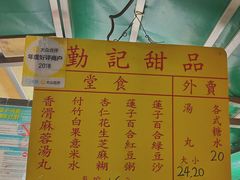 大众点评
年度好评商户
2018
勤記甜品
堂食
外賣
香滑麻蓉湯丸
付竹白果意米水
杏仁花生芝麻糊
蓮子百合紅豆沙
蓮子百合綠豆沙
湯丸
各式糖水
20
大 小
24.20